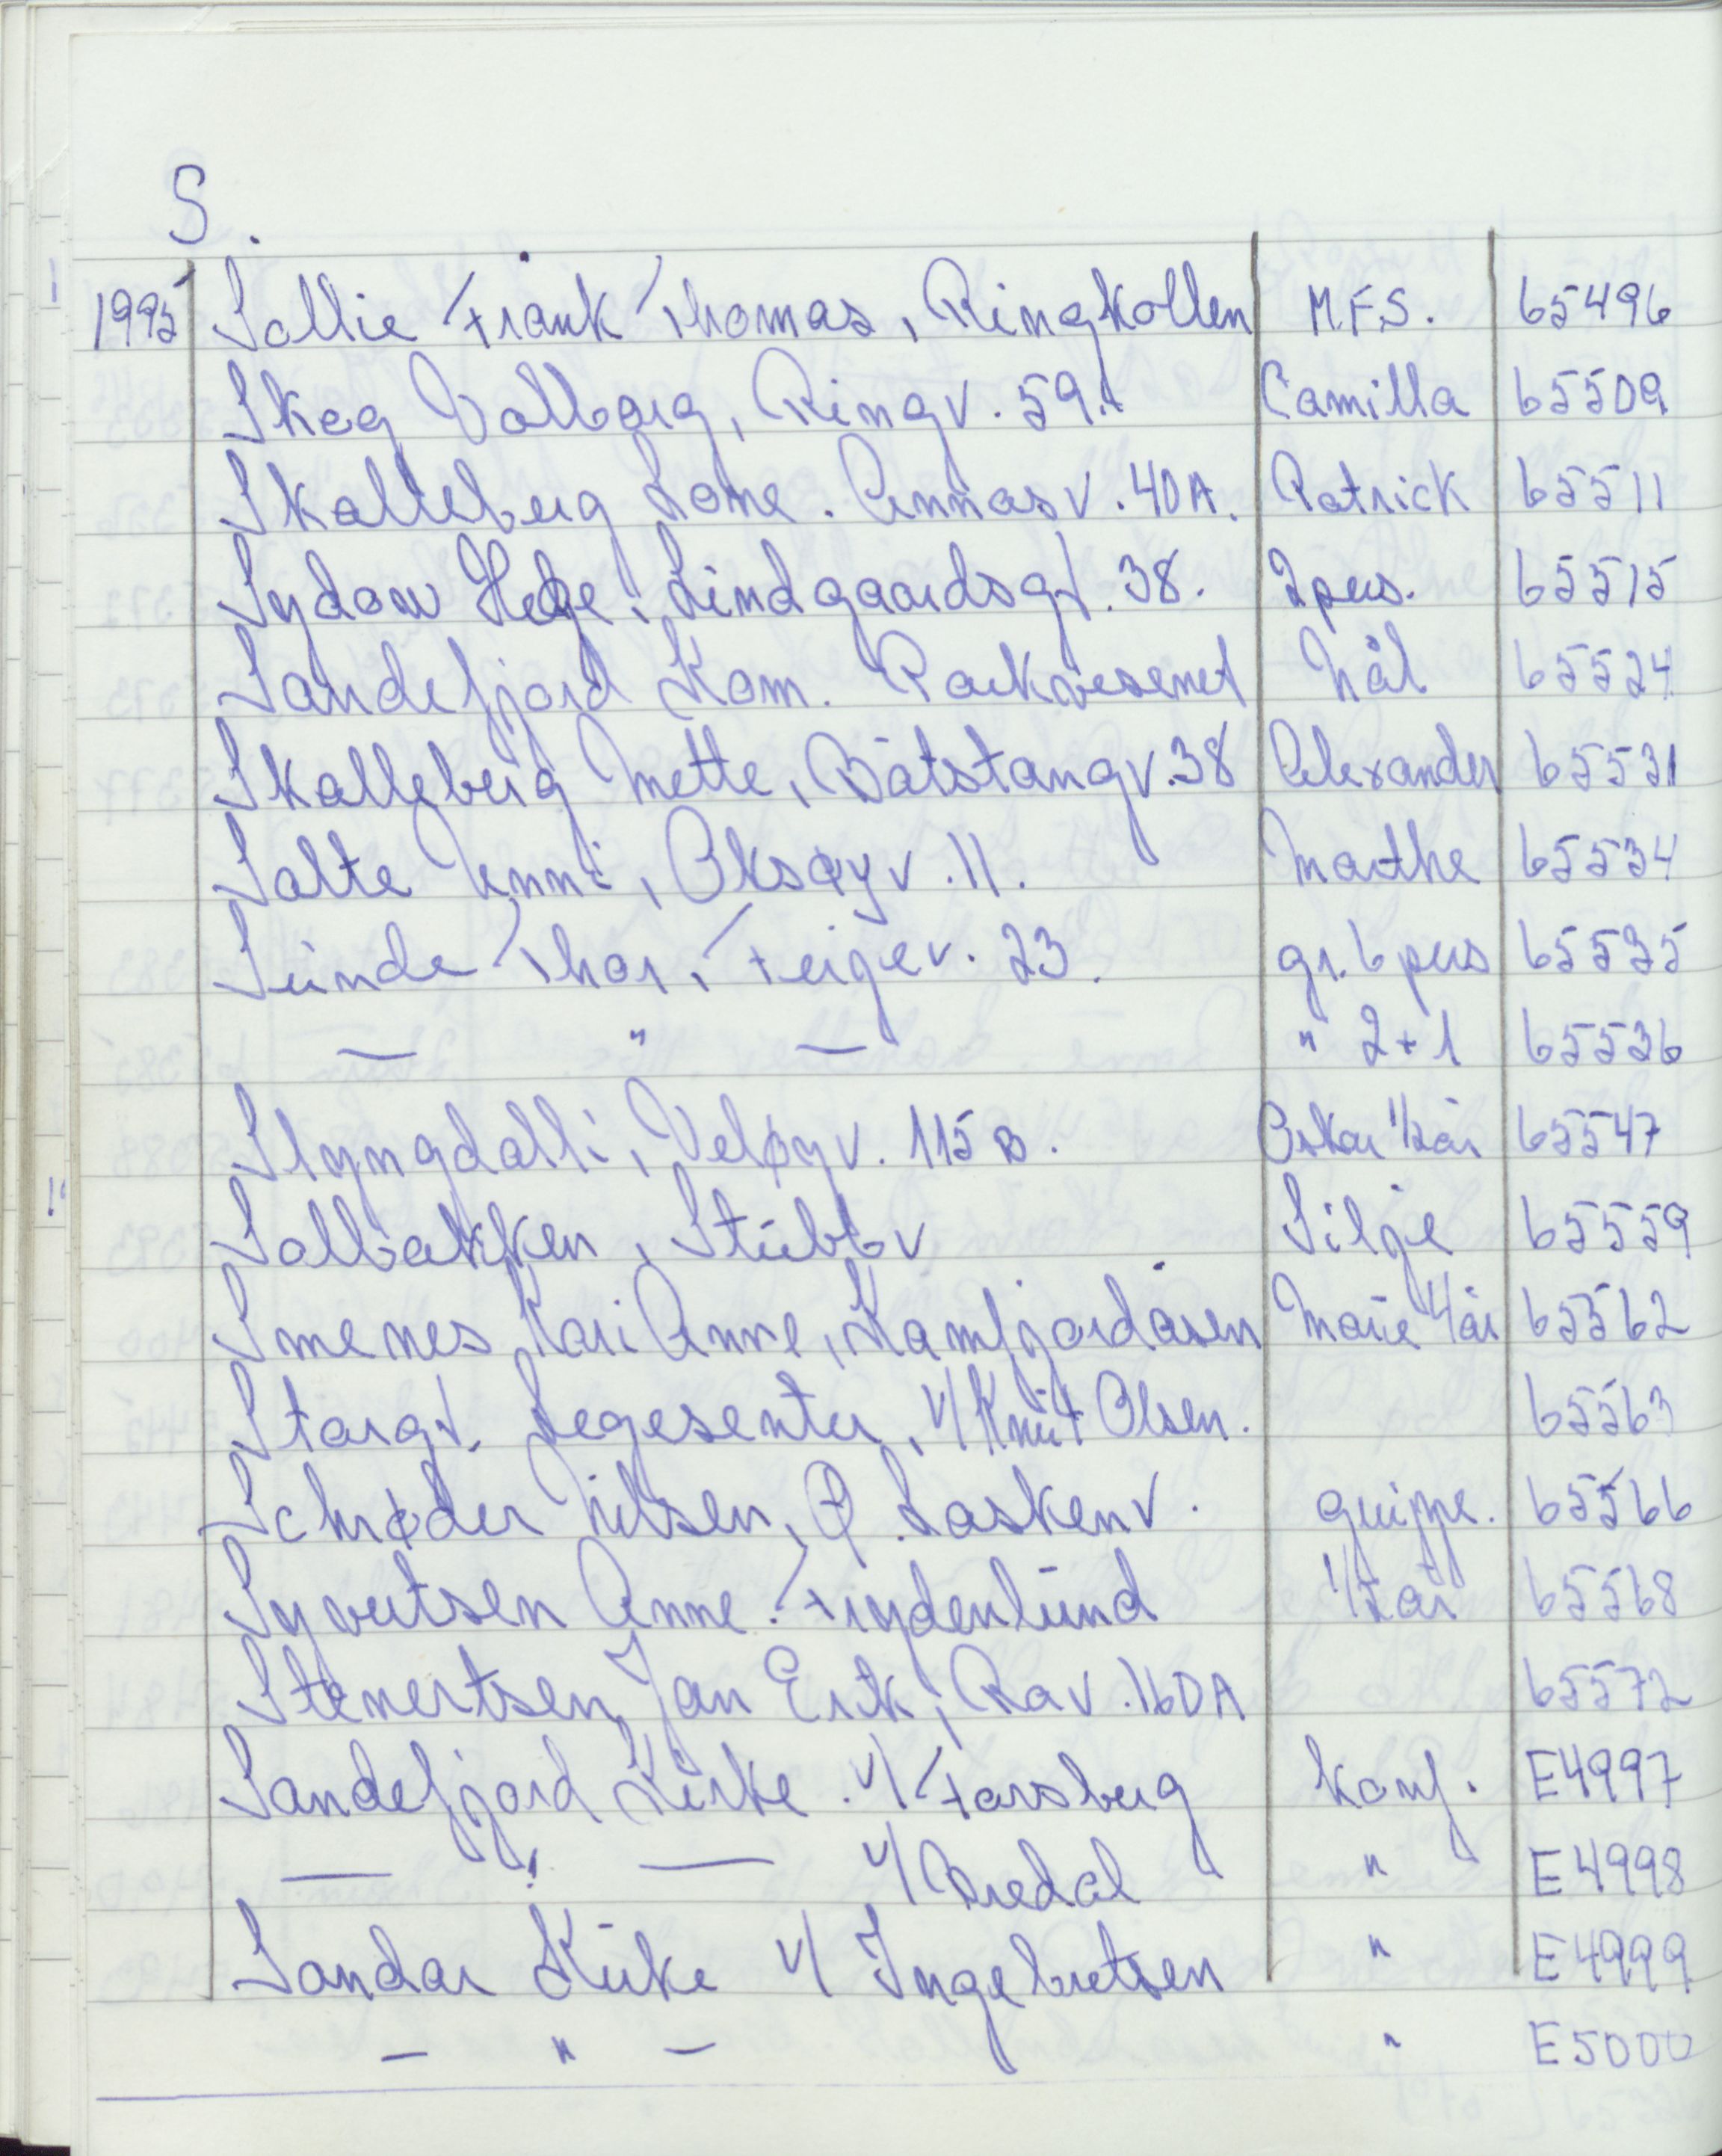 S.
1995 Sollie Frank Thomas, Ringkollen M.F.S. 65496
Skog Valborg, Ringv. 59. Camilla 65509
Skalleberg Lone. Annasv. 40A. Patrick 65511
Sydow Hege, Lindgaardsgt. 38. 2 pers. 65515
Sandefjord Kom. Parkvesenet Mål 65524
Skalleberg Mette, Båtstangv. 38 Alexander 65531
Salte Unni, Oksøyv. 11. Marthe 65534
Sunde Thor, Feigev. 23. gr. 6 pers 65535
— " — " 2+1 65536
Slyngdalli, Veløyv. 115 B. Oskar 1/2 år 65547
Solbakken, Stubbv Silje 65559
Smenes Kari Anne, Kamfjordåsen Marie 4 år 65562
Storgt. Legesenter, v/ Knut Olsen. 65563
Schrøder Nilsen, P. Laskenv. gruppe. 65566
Syvertsen Anne. Frydenlund 1/2 år 65568
Stenertsen, Jan Erik, Rav. 160A 65572
Sandefjord Kirke. v/ Farsberg konf. E4997
— " — v/ Bredal " E4998
Sandar Kirke v/ Ingebretsen " E4999
— " — " E5000